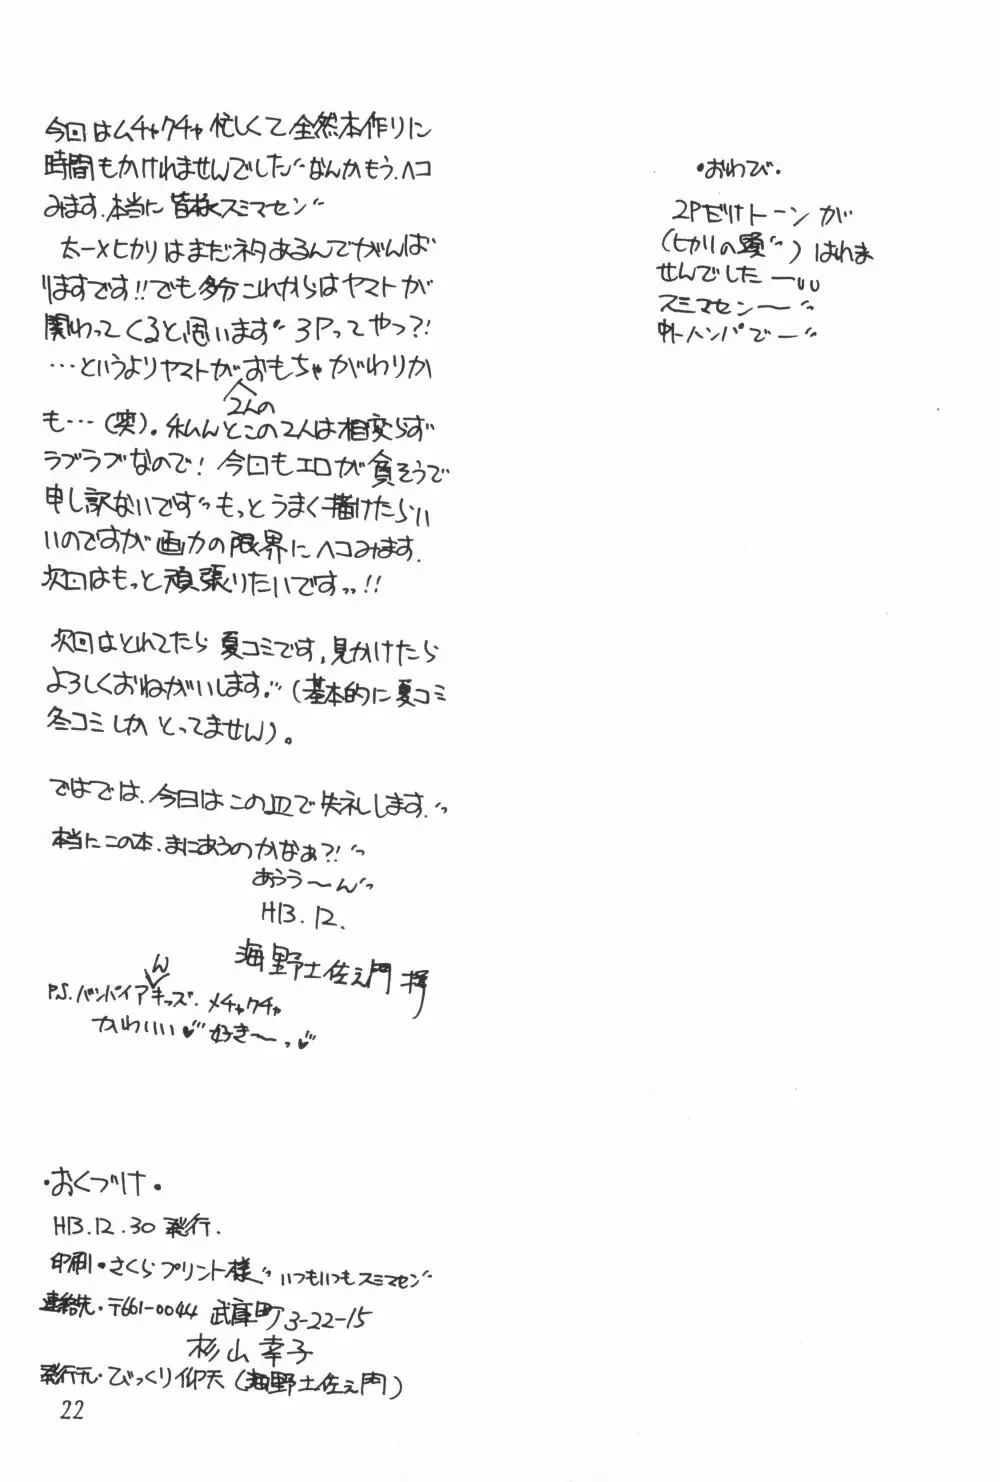 今回はムチャクチャ忙しくて全然本作りに
時間もかけれませんでした〃なんかもう、ヘコ
みます、本当に皆様スミマセン〃
太一×ヒカリはまだネタあるんでがんば
りますです!!でも多分これからはヤマトが
関わってくると思います〃3Pってやつ?!
…というよりヤマトがおもちゃがわりか
2人の
も…(笑)。私んとこの2人は相変らず
ラブラブなので!今回もエロが貧そうで
申し訳ないです〃もっとうまく描けたらい
いのですが画力の限界にヘコみます.
次回はもっと頑張りたいですッ!!
次回はとれてたら夏コミです,見かけたら
よろしくおねがいします.〃(基本的に夏コミ
冬コミしかとってません)。
ではでは、今日はこの辺で失礼します.〃
本当にこの本、まにあうのかなぁ?!〃
あうう〜ん〃
H13.12.
海野土佐ヱ門 拝
ん
P.S.バンパイアキッズ、メチャクチャ
かわいい♥〃好き〜っ♥
・おくづけ・
H13.12.30 発行.
印刷・さくらプリント様〃いつもいつもスミマセン〃
連絡先・〒661-0044 武庫町3-22-15
杉山幸子
発行元・びっくり仰天(海野土佐ヱ門)
22
・おわび・
2Pだけトーンが
(ヒカリの頭〃)はれま
せんでしたー〃
スミマセン〜〃
中トハンパでー〃